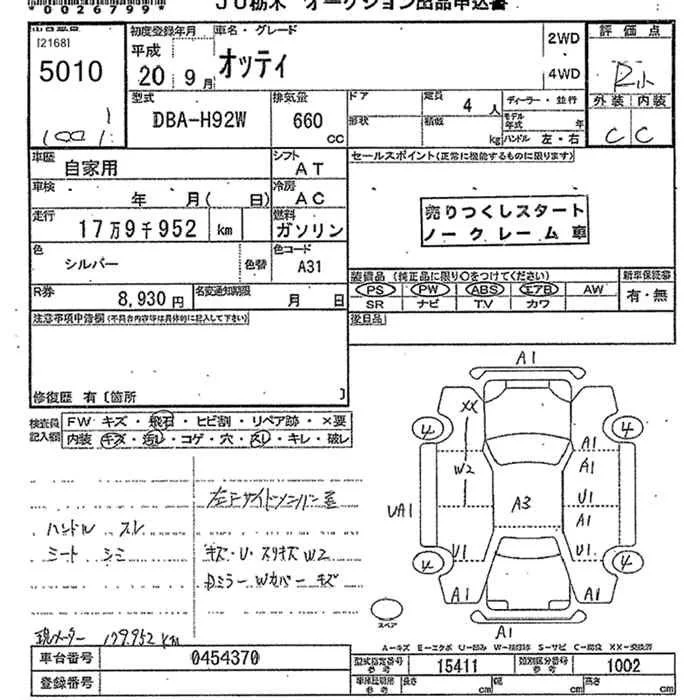 *0026799*
JU栃木 オークション出品申込書
[2168]
5010
1001
初度登録年月
平成
20 9月
車名・グレード
オッティ
2WD
4WD
評価点
外装 内装
C C
型式
DBA-H92W
排気量
660
cc
ドア
形状
定員 4 人
積載 kg
ディーラー・並行
モデル年式 年
ハンドル 左・右
車歴
自家用
シフト
AT
セールスポイント(正常に機能するものに限ります)
車検
年 月( 日)
冷房
AC
売りつくしスタート
ノークレーム車
走行
17万9千952 km
燃料
ガソリン
色
シルバー
色替
色コード
A31
装備品 (純正品に限り○をつけてください)
新車保証書
PS PW ABS エアB AW
有・無
SR ナビ T.V カワ
R券
8,930円
名変通知期限
月 日
注意事項申告欄(不具合内容等は具体的に記入して下さい)
後日品
修復歴 有〔箇所 〕
検査員
記入欄
FW キズ・飛石・ヒビ割・リペア跡・×要
内装 キズ・汚レ・コゲ・穴・スレ・キレ・破レ
ハンドル スレ
シート シミ
キズ・U・スリキズ W2
Dミラー Wカバー キズ
現メーター 179.952 km
A1
XX
4
4
A1
W2
A1
UA1
A3
U1
A1
U1
U1
4
4
A1
A1
A1
スペア
A-キズ E-エクボ U-凹み W-補修跡 S-サビ C-腐蝕 XX-交換済
車台番号
0454370
型式指定番号
参考
15411
類別区分番号
参考
1002
登録番号
車庫証明用
参考
長さ cm
幅 cm
高さ cm